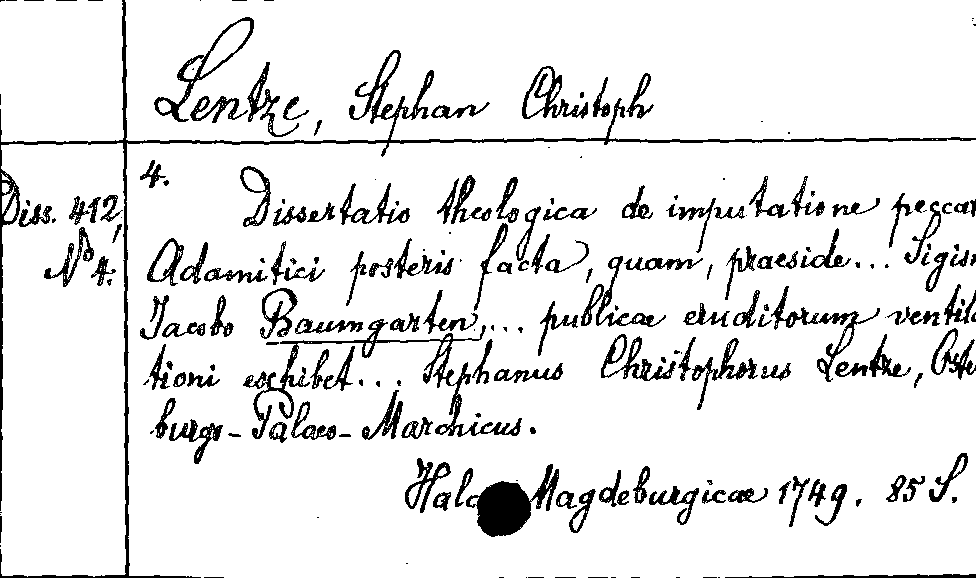 Lentze, Stephan Christoph
4.
Diss. 412,
No 4.
Dissertatio theologica de imputatione peccat
Adamitici posteris facta, quam, praeside... Sigism
Jacobo Baumgarten,... publicae eruditorum ventila
tioni exhibet... Stephanus Christophorus Lentze, Oste
burgo-Palaeo-Marchicus.
Halae Magdeburgicae 1749. 85 S.